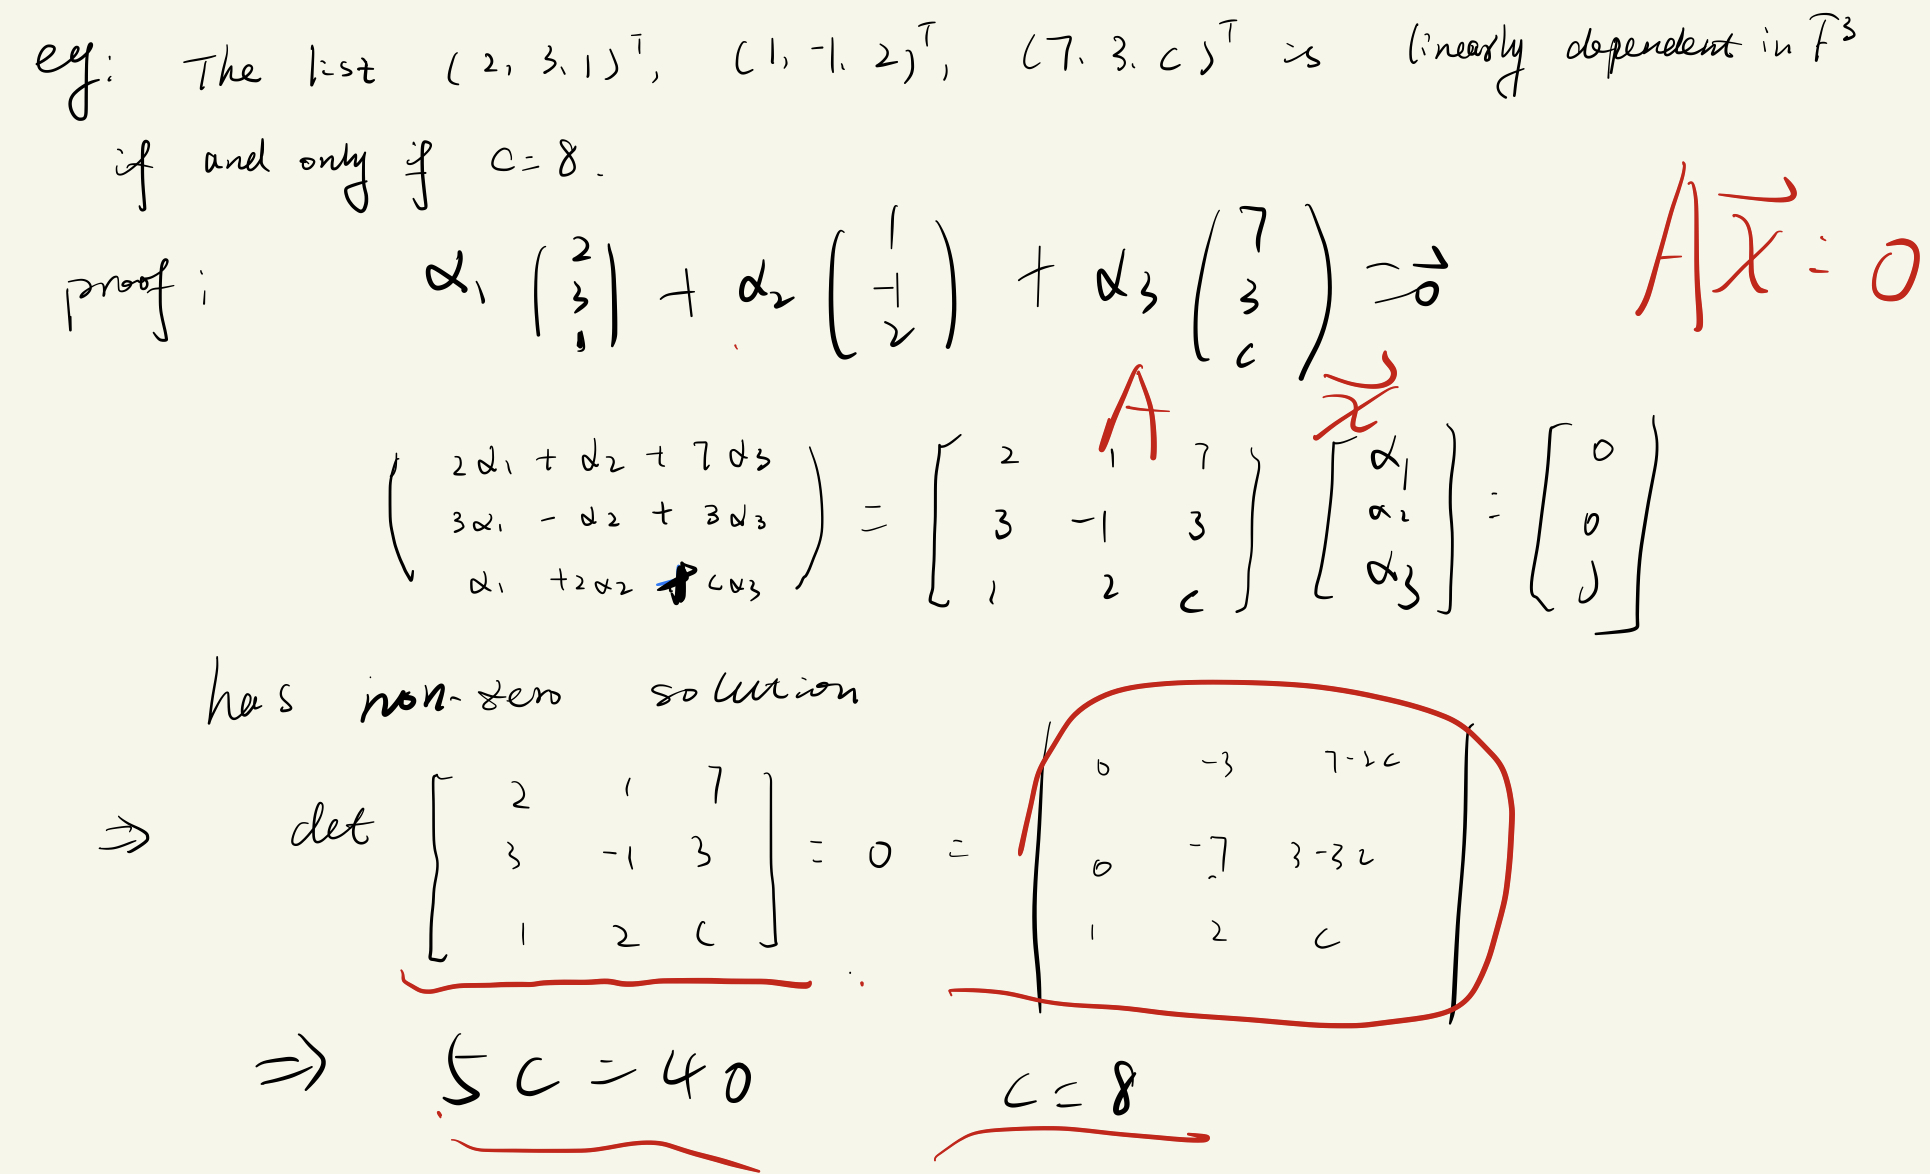 eg: The list (2, 3, 1)ᵀ, (1, -1, 2)ᵀ, (7, 3, c)ᵀ is linearly dependent in F³
if and only if c = 8.
proof: α₁ (2 3 1) + α₂ (1 -1 2) + α₃ (7 3 c) = 0⃗
Ax⃗ = 0
A x⃗
(2α₁ + α₂ + 7α₃ = [2 1 7 [α₁ = [0
3α₁ - α₂ + 3α₃ 3 -1 3 α₂ 0
α₁ + 2α₂ + cα₃) 1 2 c] α₃] 0]
has non-zero solution
⇒ det [2 1 7 = 0 = |0 -3 7-2c
3 -1 3 0 -7 3-3c
1 2 c] 1 2 c|
⇒ 5c = 40 c = 8